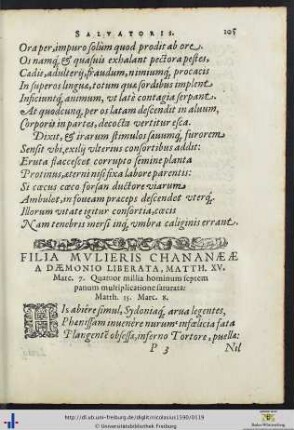 SALVATORIS. 105
Ora per, impuro solùm quod prodit ab ore.
Os namq́, & quasuis exhalant pectora pestes,
Cædis, adulterij, fraudum, nimiumq́, procacis
In superos linguæ, totum quæ sordibus implent
Inficiuntq́, animum, vt latè contagia serpant.
At quodcunq, per os latam descendit in aluum,
Corporis in partes, decocta vertitur esca.
Dixit, & irarum stimulos sæuumq́, furorem
Sensit vbi, exilij vlterius consortibus addit:
Eruta flaccescet corrupto semine planta
Protinus, æterni nisi fixa labore parentis:
Si cœcus cœco forsan ductore viarum
Ambulet, in foueam præceps descendet vterq́;
Illorum vitate igitur consortia, cœcis
Nam tenebris mersi inq́, vmbra caliginis errant.
FILIA MVLIERIS CHANANÆÆ
A DÆMONIO LIBERATA, MATTH. XV.
Marc. 7. Quatuor millia hominum septem
panum multiplicatione saturata:
Matth. 15. Marc. 8.
HIs abiêre simul, Sydoniaq́, arua legentes,
Phœnissam inuenêre nurum: infœlicia fata
Plangentê obsessæ, inferno Tortore, puellæ:
P 3 Nil
http://dl.ub.uni-freiburg.de/diglit/nicolosius1590/0119
© Universitätsbibliothek Freiburg
Baden-Württemberg